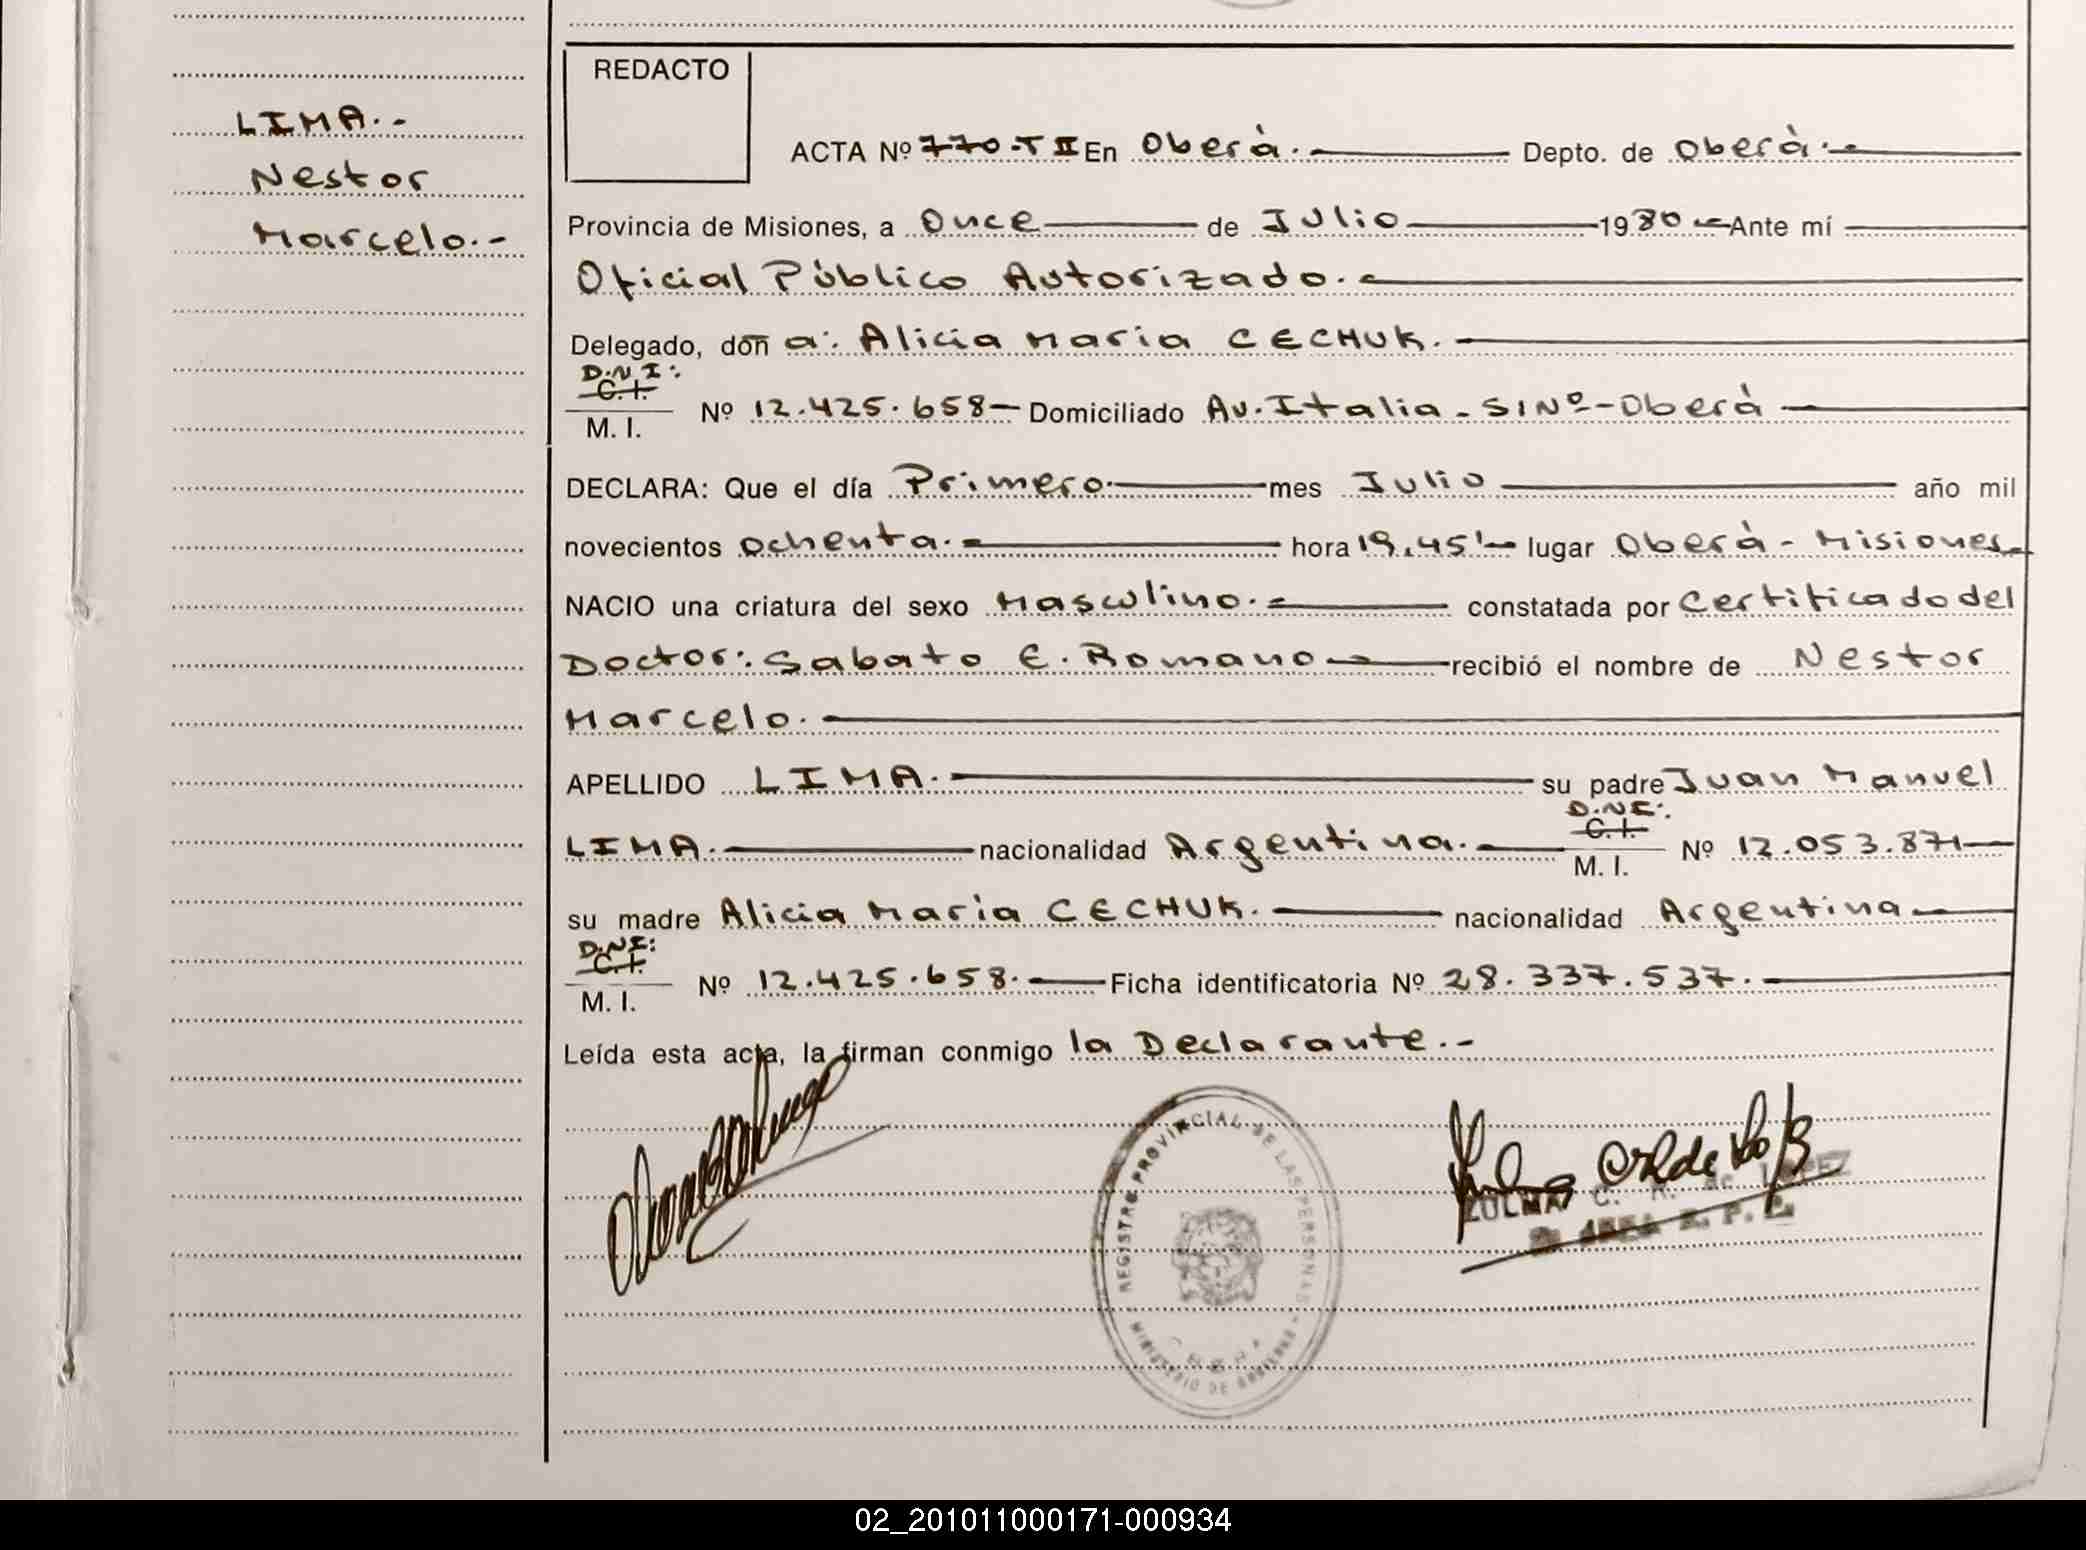 REDACTO
LIMA.-
Nestor
Marcelo.-
ACTA Nº 770-T II En Oberà.- Depto. de Oberà.-
Provincia de Misiones, a Once de Julio 1980.- Ante mí
Oficial Pùblico Autorizado.-
Delegado, don̄ a: Alicia Maria CECHUK.-
D.N.I:
C.I.
M. I. Nº 12.425.658- Domiciliado Av. Italia - S/Nº - Oberà
DECLARA: Que el día Primero.- mes Julio año mil
novecientos ochenta.- hora 19,45'- lugar Oberà - Misiones.-
NACIO una criatura del sexo Masculino.- constatada por Certificado del
Doctor: Sabato E. Romano recibió el nombre de Nestor
Marcelo.-
APELLIDO LIMA.- su padre Juan Manuel
D.N.I:
C.I.
LIMA.- nacionalidad Argentina.- M. I. Nº 12.053.871-
su madre Alicia Maria CECHUK.- nacionalidad Argentina-
D.N.I:
C.I.
M. I. Nº 12.425.658.- Ficha identificatoria Nº 28.337.537.-
Leída esta acta, la firman conmigo la Declarante.-
REGISTRO PROVINCIAL DE LAS PERSONAS
MINISTERIO DE GOBIERNO
ZULMA C. R. de LOPEZ
02_201011000171-000934